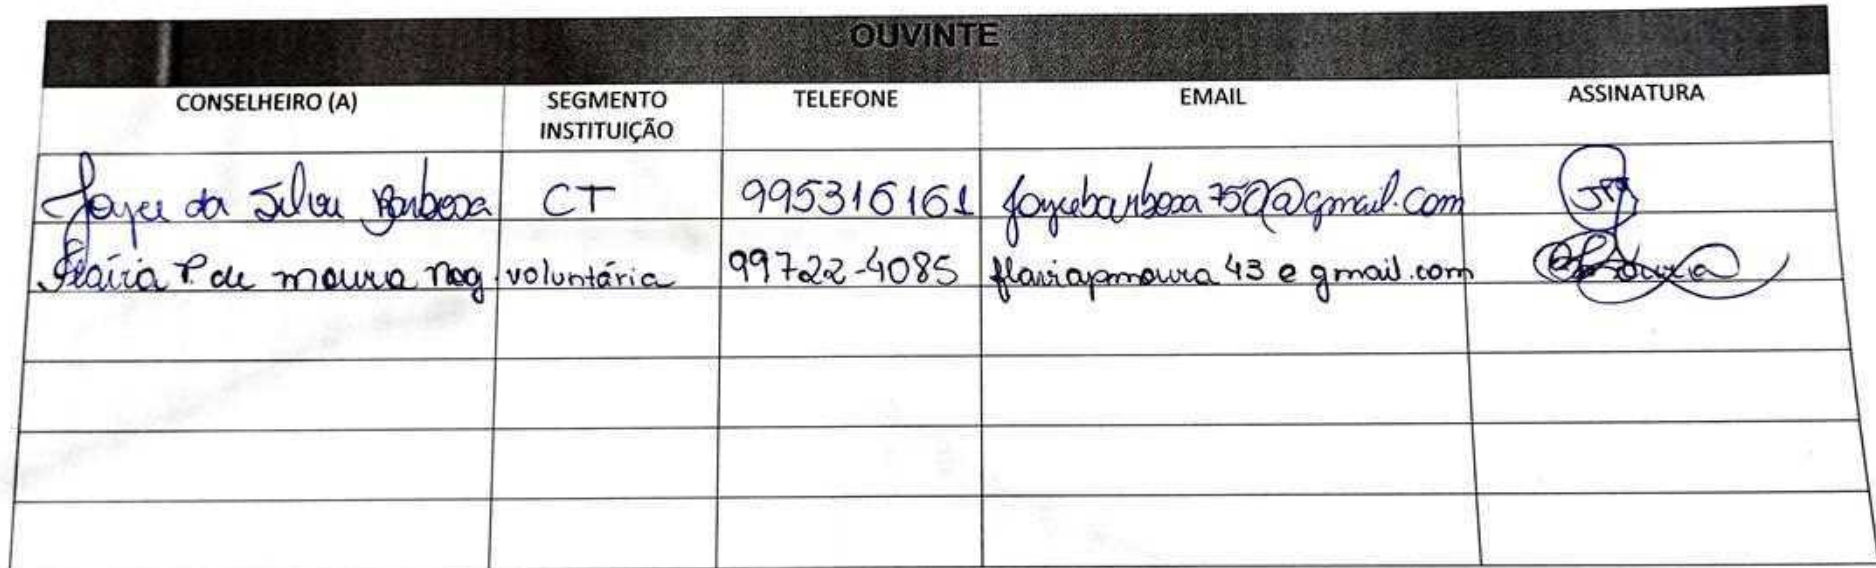 OUVINTE
CONSELHEIRO (A) SEGMENTO INSTITUIÇÃO TELEFONE EMAIL ASSINATURA
Joyce da Silva Barbosa CT 995316161 joycebarbosa750@gmail.com
Flávia P. de moura nog. voluntária 99722-4085 flaviapmoura43 e gmail.com